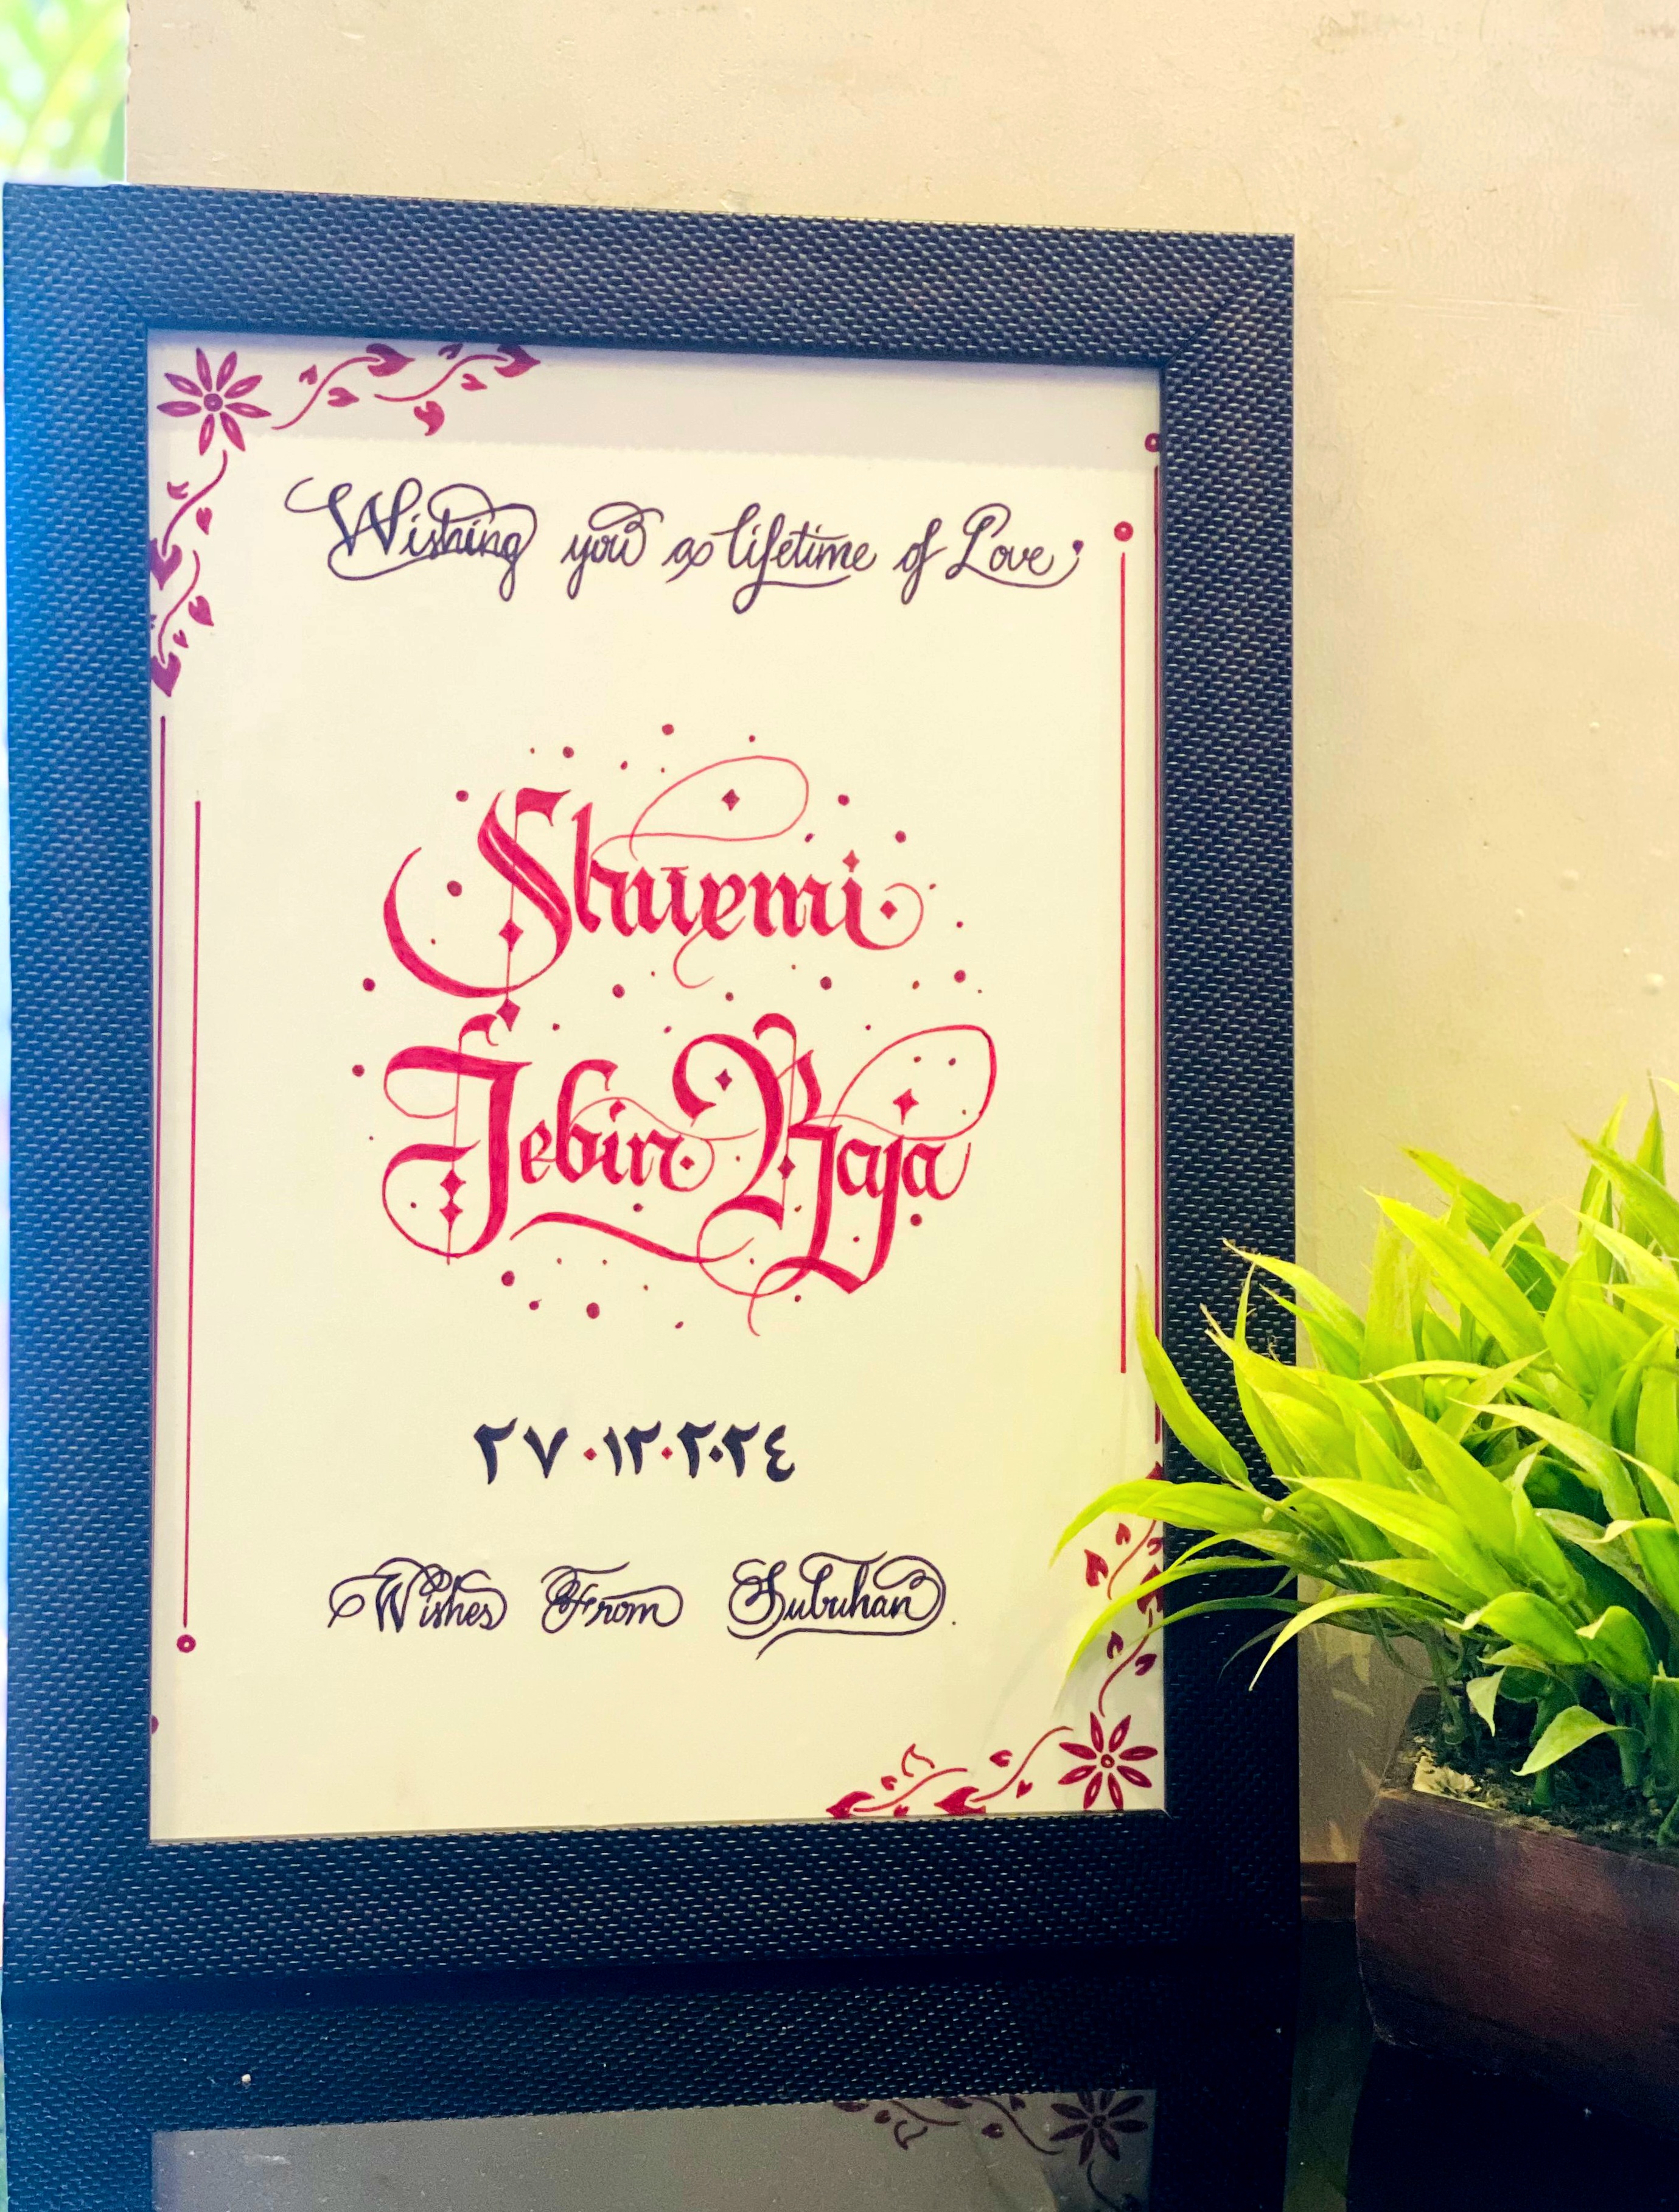 Wishing you a lifetime of Love
Shuremi
Jebin Raja
٢٧.١٢.٢٠٢٤
Wishes From Subuhan